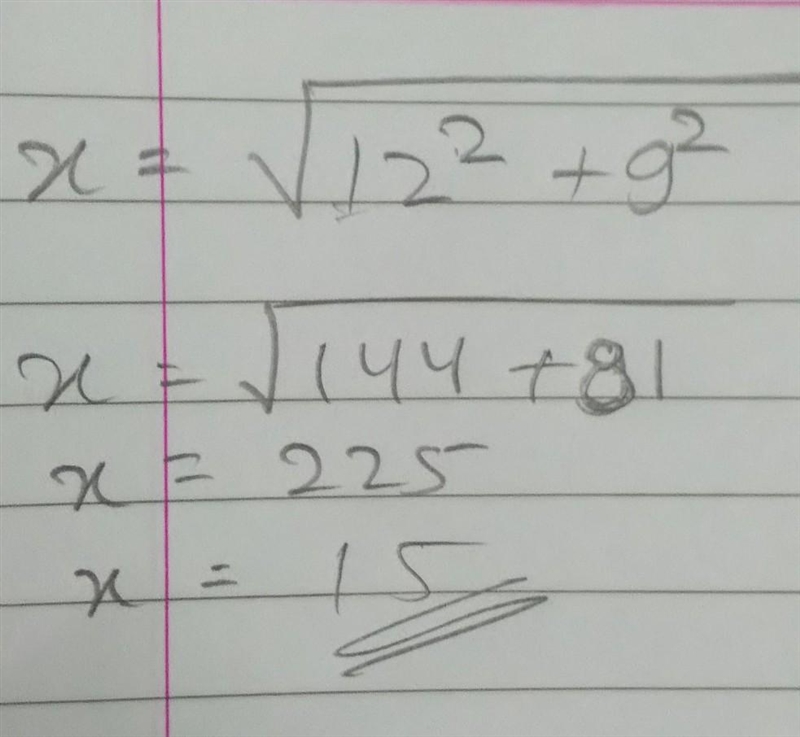 x = √12² + 9²
x = √144 + 81
x = 225
x = 15